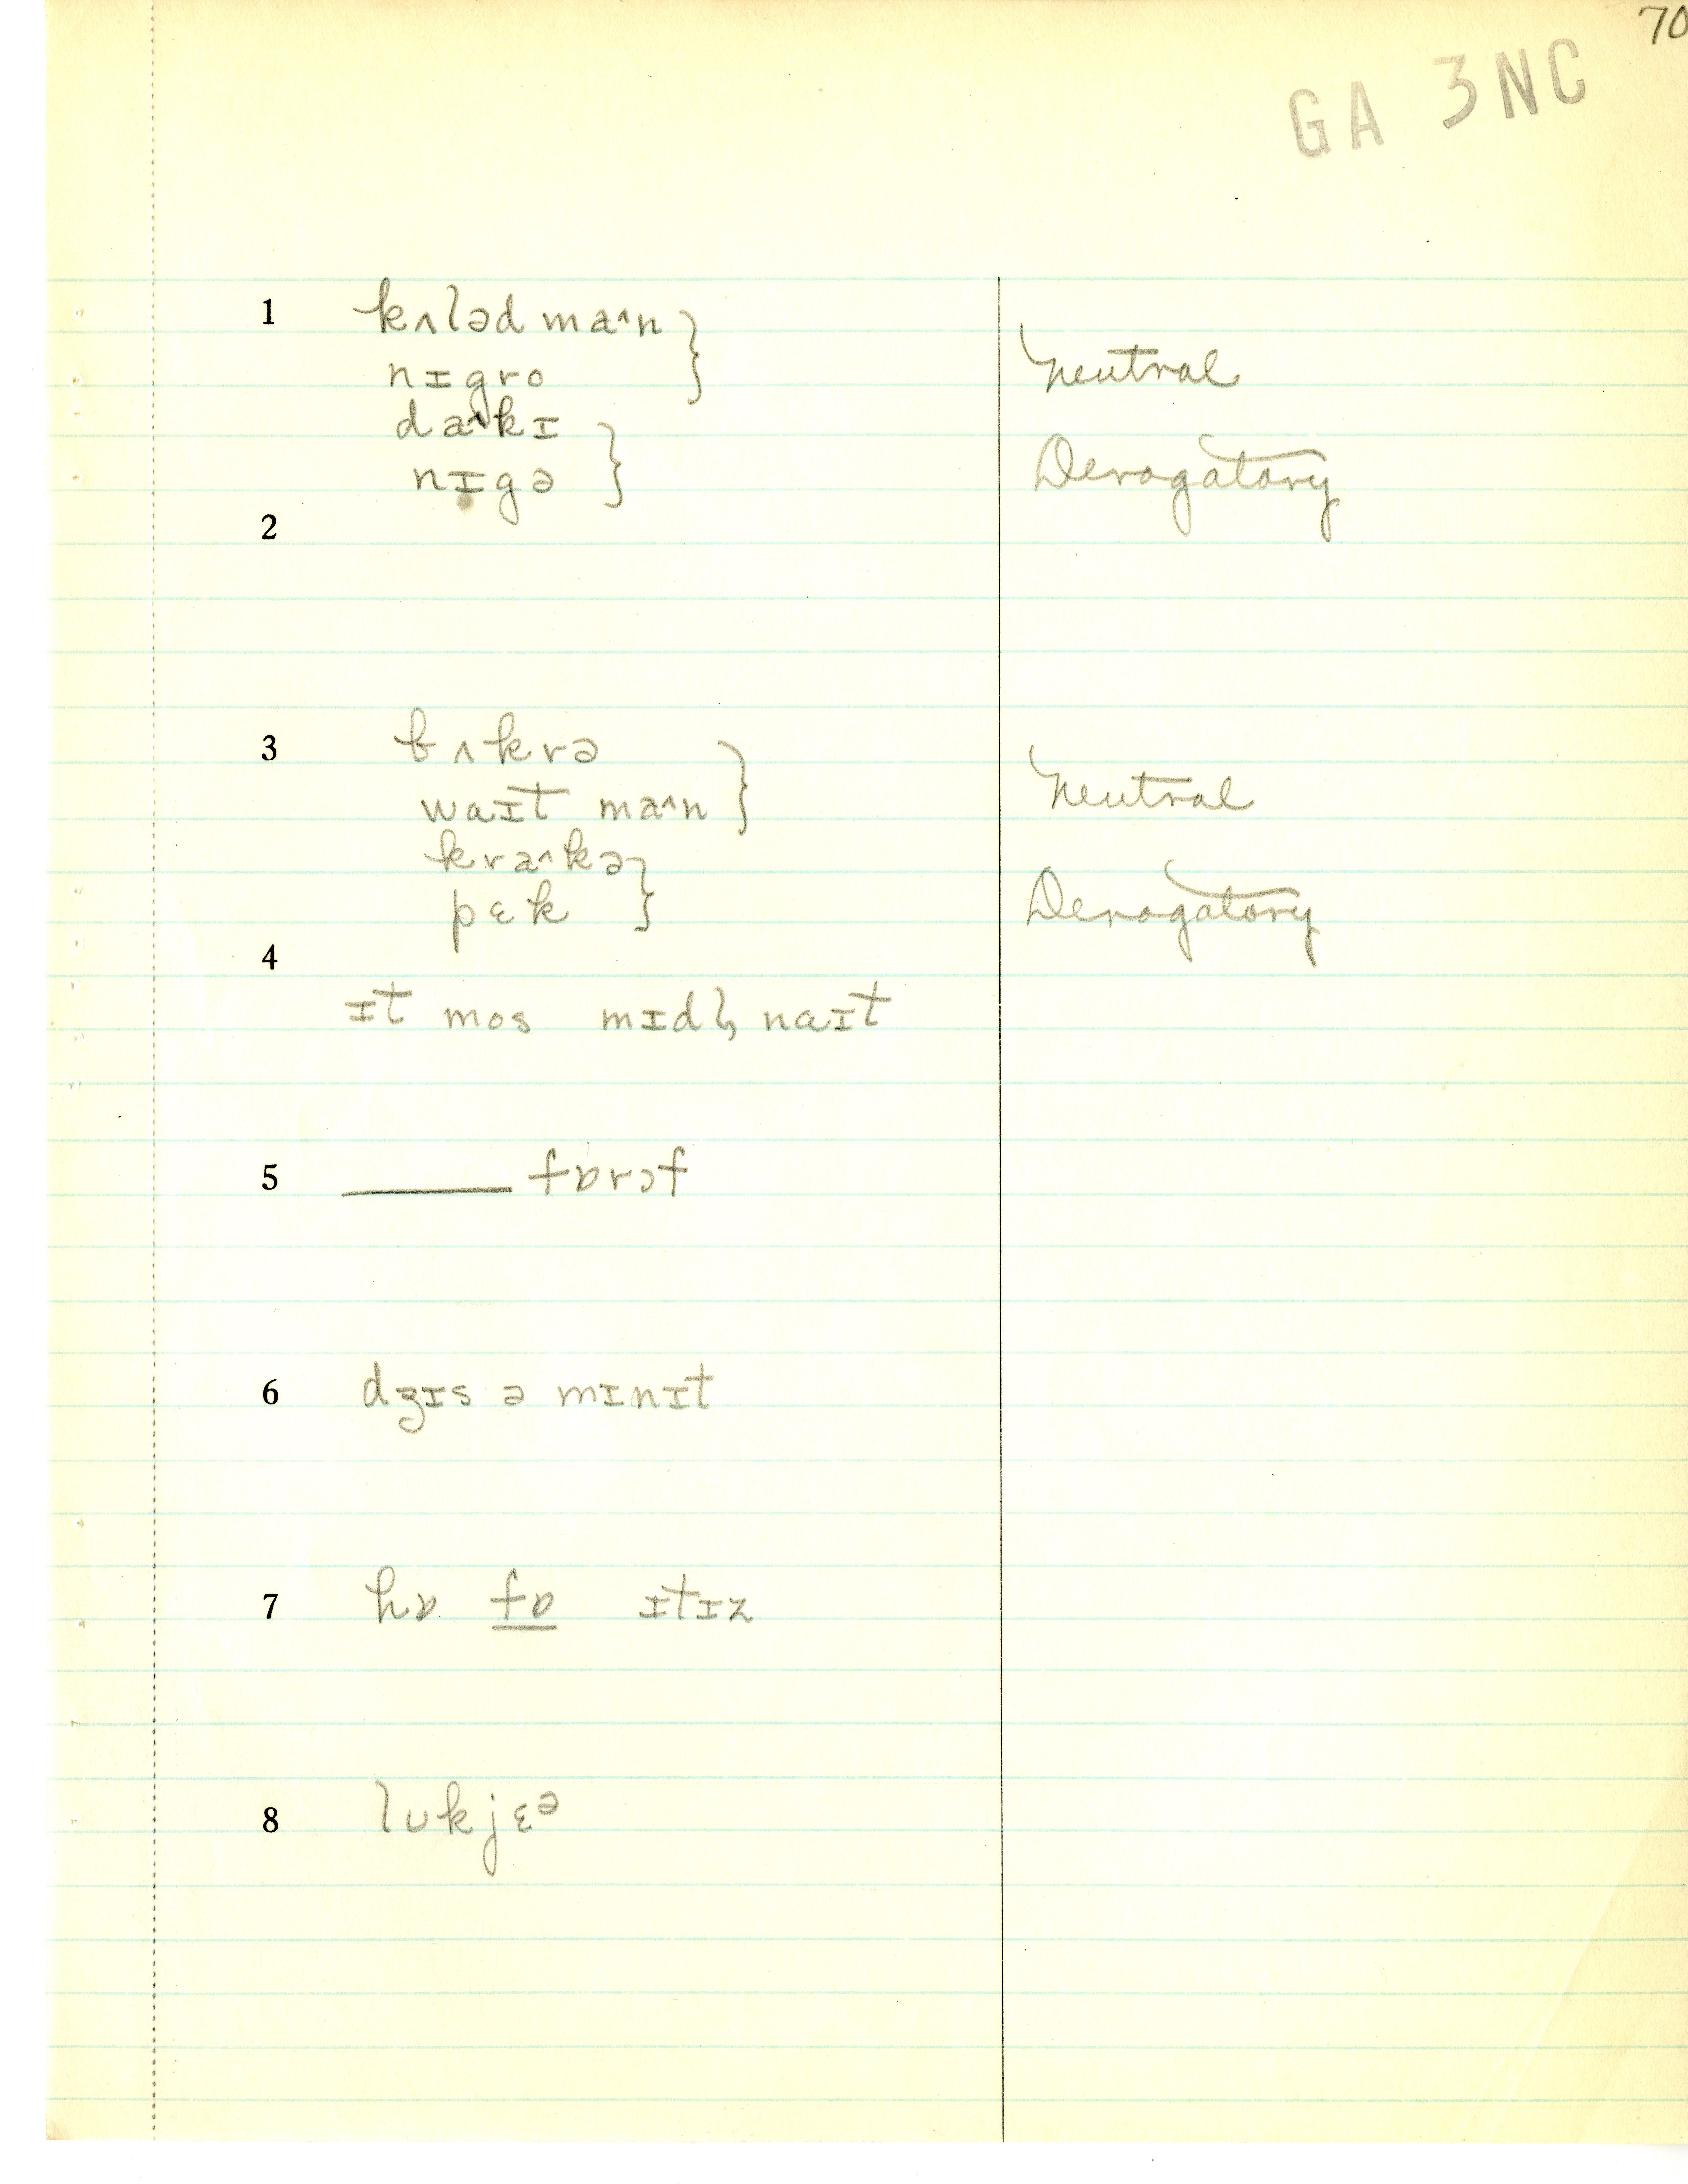 70
GA 3NC
1 kʌləd maˆn }
nɪgro Neutral
daˆkɪ }
nɪgə Derogatory
2
3 bʌkrə }
waɪt maˆn Neutral
kraˆkə }
pɛk Derogatory
4
ɪt mos mɪdl̩ naɪt
5 ______ fɒrɔf
6 dʒɪs ə mɪnɪt
7 hɒ fɒ ɪtɪz
8 lʊkjɛᵊ